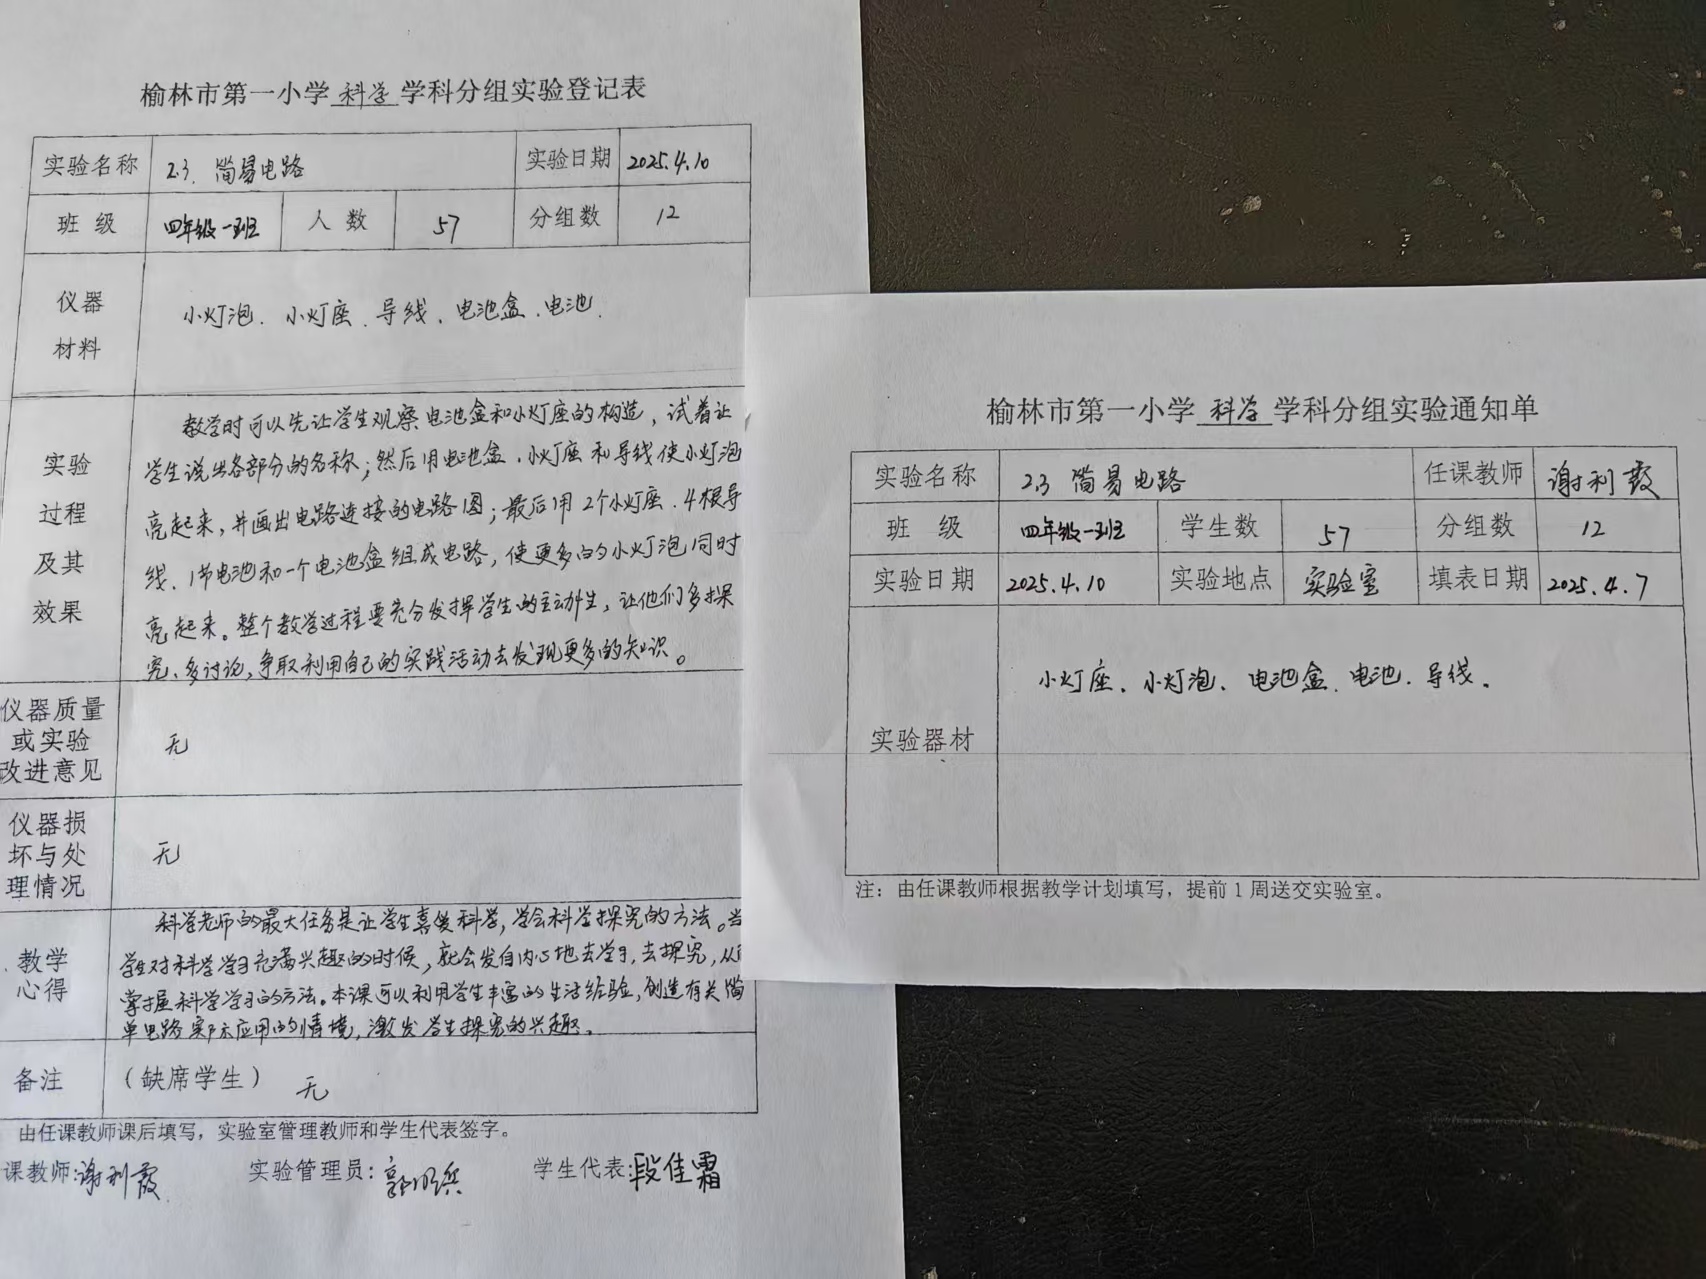 榆林市第一小学 科学 学科分组实验登记表
实验名称 2.3. 简易电路 实验日期 2025.4.10
班 级 四年级一班 人 数 57 分组数 12
仪器
材料
小灯泡、小灯座、导线、电池盒、电池.
实验
过程
及其
效果
教学时可以先让学生观察电池盒和小灯座的构造，试着让
学生说出各部分的名称；然后用电池盒、小灯座和导线使小灯泡
亮起来，并画出电路连接的电路图；最后用2个小灯座、4根导
线、1节电池和一个电池盒组成电路，使更多的小灯泡同时
亮起来。整个教学过程要充分发挥学生的主动性，让他们多探
究、多讨论，争取利用自己的实践活动去发现更多的知识。
仪器质量
或实验
改进意见
无
仪器损
坏与处
理情况
无
教学
心得
科学老师的最大任务是让学生喜爱科学，学会科学探究的方法。当
学生对科学学习充满兴趣的时候，就会发自内心地去学习，去探究，从
掌握科学学习的方法。本课可以利用学生丰富的生活经验，创造有关简
单电路实际应用的情境，激发学生探究的兴趣。
备注 （缺席学生） 无
由任课教师课后填写，实验室管理教师和学生代表签字。
课教师：谢利霞 实验管理员： 学生代表：段佳霜
榆林市第一小学 科学 学科分组实验通知单
实验名称 2.3 简易电路 任课教师 谢利霞
班 级 四年级一班 学生数 57 分组数 12
实验日期 2025.4.10 实验地点 实验室 填表日期 2025.4.7
实验器材
小灯座、小灯泡、电池盒、电池、导线。
注：由任课教师根据教学计划填写，提前1周送交实验室。